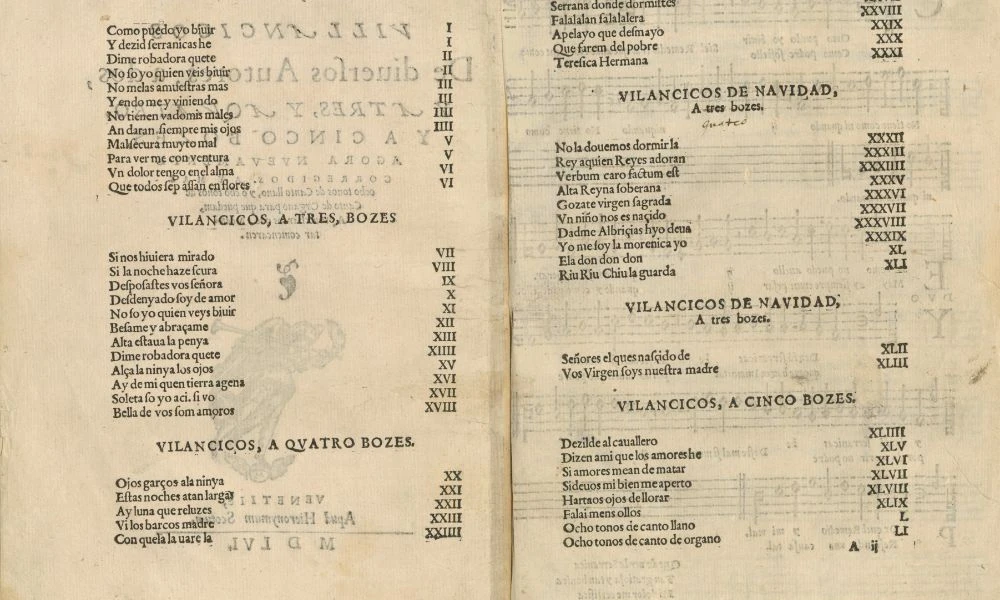 Como puedo yo biuir I
Y dezid ſerranicas he I
Dime robadora quete II
No ſo yo quien veis biuir II
No melas amueſtras mas III
Y endo me y viniendo III
No tienen vado mis males IIII
An daran ſiempre mis ojos IIII
Malſecura muyto mal V
Para ver me con ventura V
Vn dolor tengo en el alma VI
Que todos ſep aſſan en flores VI
VILANCICOS, A TRES, BOZES
Si nos hiuiera mirado VII
Si la noche haze ſcura VIII
Deſpoſaſtes vos ſeñora IX
Desdenyado ſoy de amor X
No ſo yo quien veys biuir XI
Beſame y abraçame XII
Alta eſtaua la penya XIII
Dime robadora quete XIIII
Alça la ninya los ojos XV
Ay de mi quen tierra agena XVI
Soleta ſo yo aci. ſi vo XVII
Bella de vos ſom amoros XVIII
VILANCIÇOS, A QVATRO BOZES.
Ojos garços ala ninya XX
Eſtas noches atan largas XXI
Ay luna que reluzes XXII
Vi los barcos madre XXIII
Con quela la uare la XXIIII
Serrana donde dormiſtes
Falalalan falalalera XXVIII
Apelayo que deſmayo XXIX
Que farem del pobre XXX
Tereſica Hermana XXXI
VILANCICOS DE NAVIDAD,
A tres bozes.
quatro
No la douemos dormir la XXXII
Rey aquien Reyes adoran XXXIII
Verbum caro factum eſt XXXIIII
Alta Reyna ſoberana XXXV
Gozate virgen ſagrada XXXVI
Vn niño nos es naçido XXXVII
Dadme Albriçias hyo deua XXXVIII
Yo me ſoy la morenica yo XXXIX
Ela don don don XL
Riu Riu Chiu la guarda XLI
VILANCICOS DE NAVIDAD,
A tres bozes.
Señores el ques naſçido de XLII
Vos Virgen ſoys nueſtra madre XLIII
VILANCICOS, A CINCO BOZES.
Dezilde al cauallero XLIIII
Dizen ami que los amores he XLV
Si amores mean de matar XLVI
Sideuos mi bien me aperto XLVII
Hartaos ojos de llorar XLVIII
Falai mens ollos XLIX
Ocho tonos de canto llano L
Ocho tonos de canto de organo LI
A ij